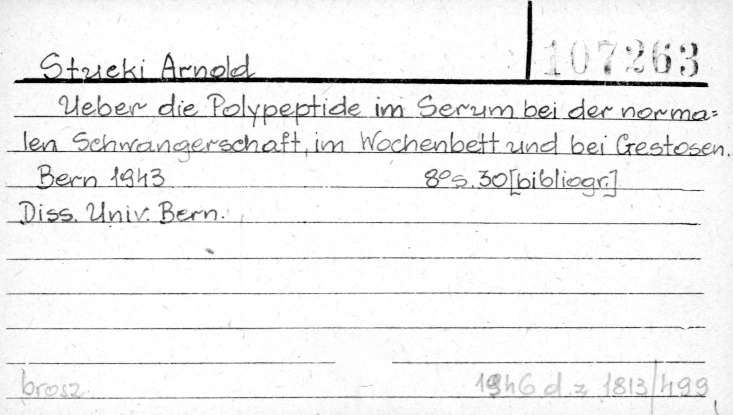 107263
Stucki Arnold
Ueber die Polypeptide im Serum bei der norma=
len Schwangerschaft, im Wochenbett und bei Gestosen.
Bern 1943 8°s. 30 [bibliogr.]
Diss. Univ. Bern.
brosz 1946 d z 1813/499